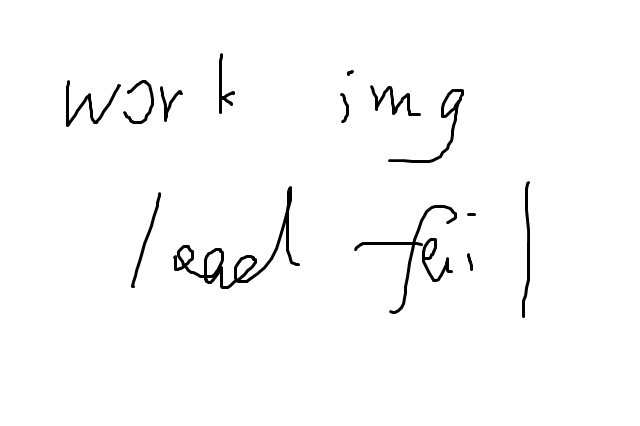 work img
load fail